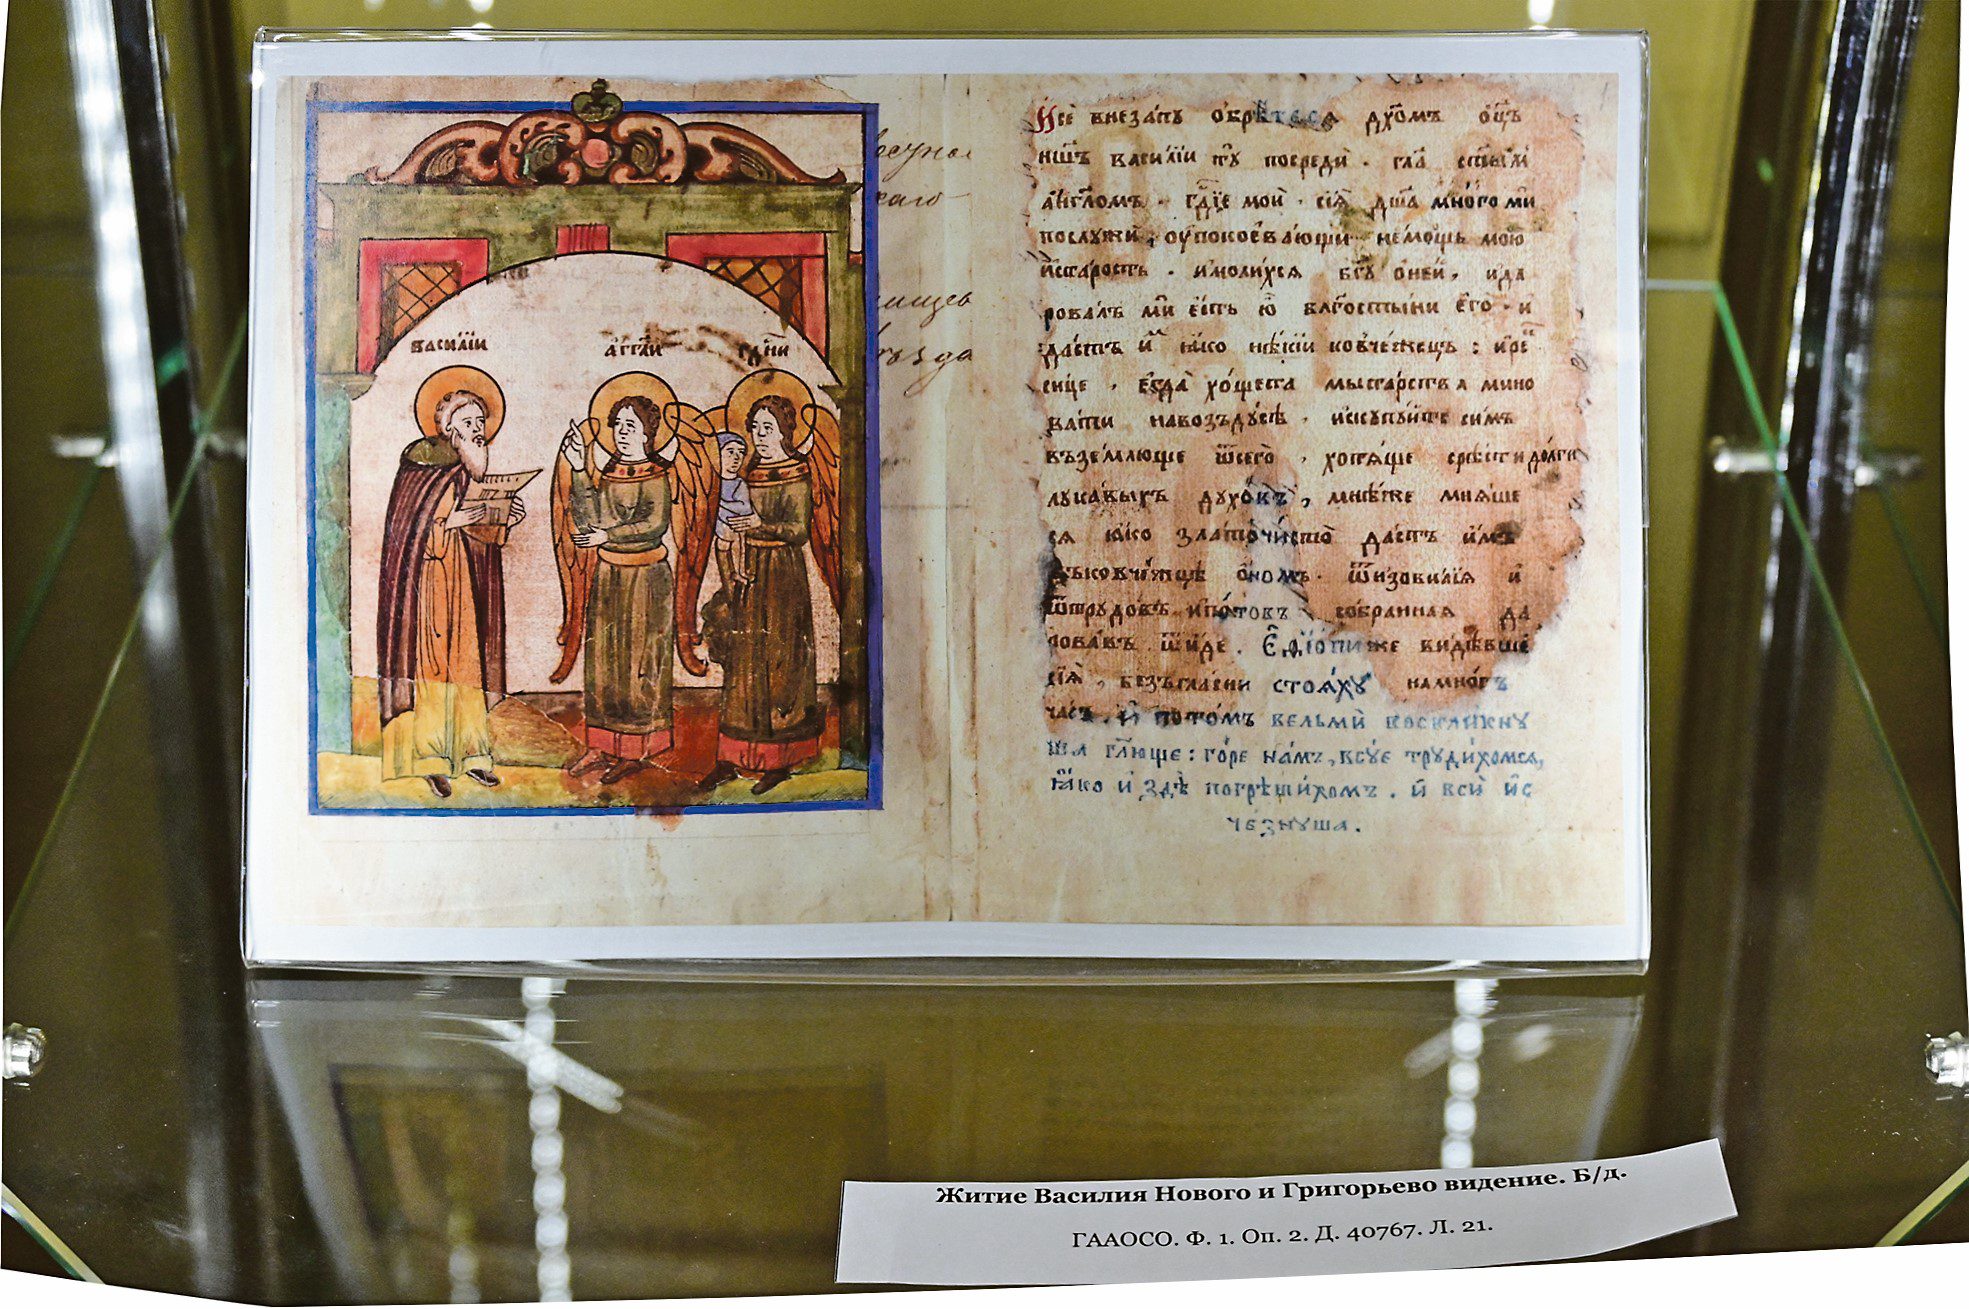 василїи
агг҃ли
гд҃ни
И҆сѐ внеза́пꙋ ѻ҆брѣ́теся дх҃омъ ѻ҆ц҃ъ
нш҃ъ василїи тꙋ̀ посредѝ . гл҃а ст҃ымъ
а҆нг҃ломъ . гд҃їе мои . сїѧ̀ дш҃а мно́го ми
послꙋжѝ, оу҆покоева́ющи не́мощь мою̀
и҆ста́рость . и҆моли́хся бг҃ꙋ ѡ҆не́й, и҆да
рова́лъ мѝ є҆́сть ю҆̀ бл҃гостыни є҆гѡ̀ . и҆
да́стъ и҆́мъ ꙗ҆́ко нѣ́кїи ковче́жецъ : и҆ре́
си́це . є҆гда̀ хо́щете мыта́рства мино
ва́ти навоздꙋ́сѣ . и҆скꙋпꙋ́йте си́мъ
въземлюще ѿсегѡ̀ , хотя́ще сре́сти и до́лги
лꙋка́выхъ дꙋхо́въ, мнѣ́же мня́ше
ся ꙗ҆́ко зла́то чи́стое да́стъ и҆́мъ
въковче́жцѣ ѻ҆́номъ . ѿи҆зоби́лїя и҆
ѿтрꙋдо́въ и҆по́товъ со́бранная да
рова́въ ѿи́де . Є҆ѳїо́пи же ви́дѣвше
сїѧ̀ , безъгла́сни стоя́хꙋ намно́гъ
ча́съ . И҆ пото́мъ вельмѝ воскли́кнꙋ
ша гл҃юще : го́ре на́мъ, всꙋ́е трꙋди́хомся,
ꙗ҆́ко и҆ здѣ̀ погрѣши́хомъ . и҆ всѝ и҆с
че́знꙋша .
Житие Василия Нового и Григорьево видение. Б/д.
ГААОСО. Ф. 1. Оп. 2. Д. 40767. Л. 21.